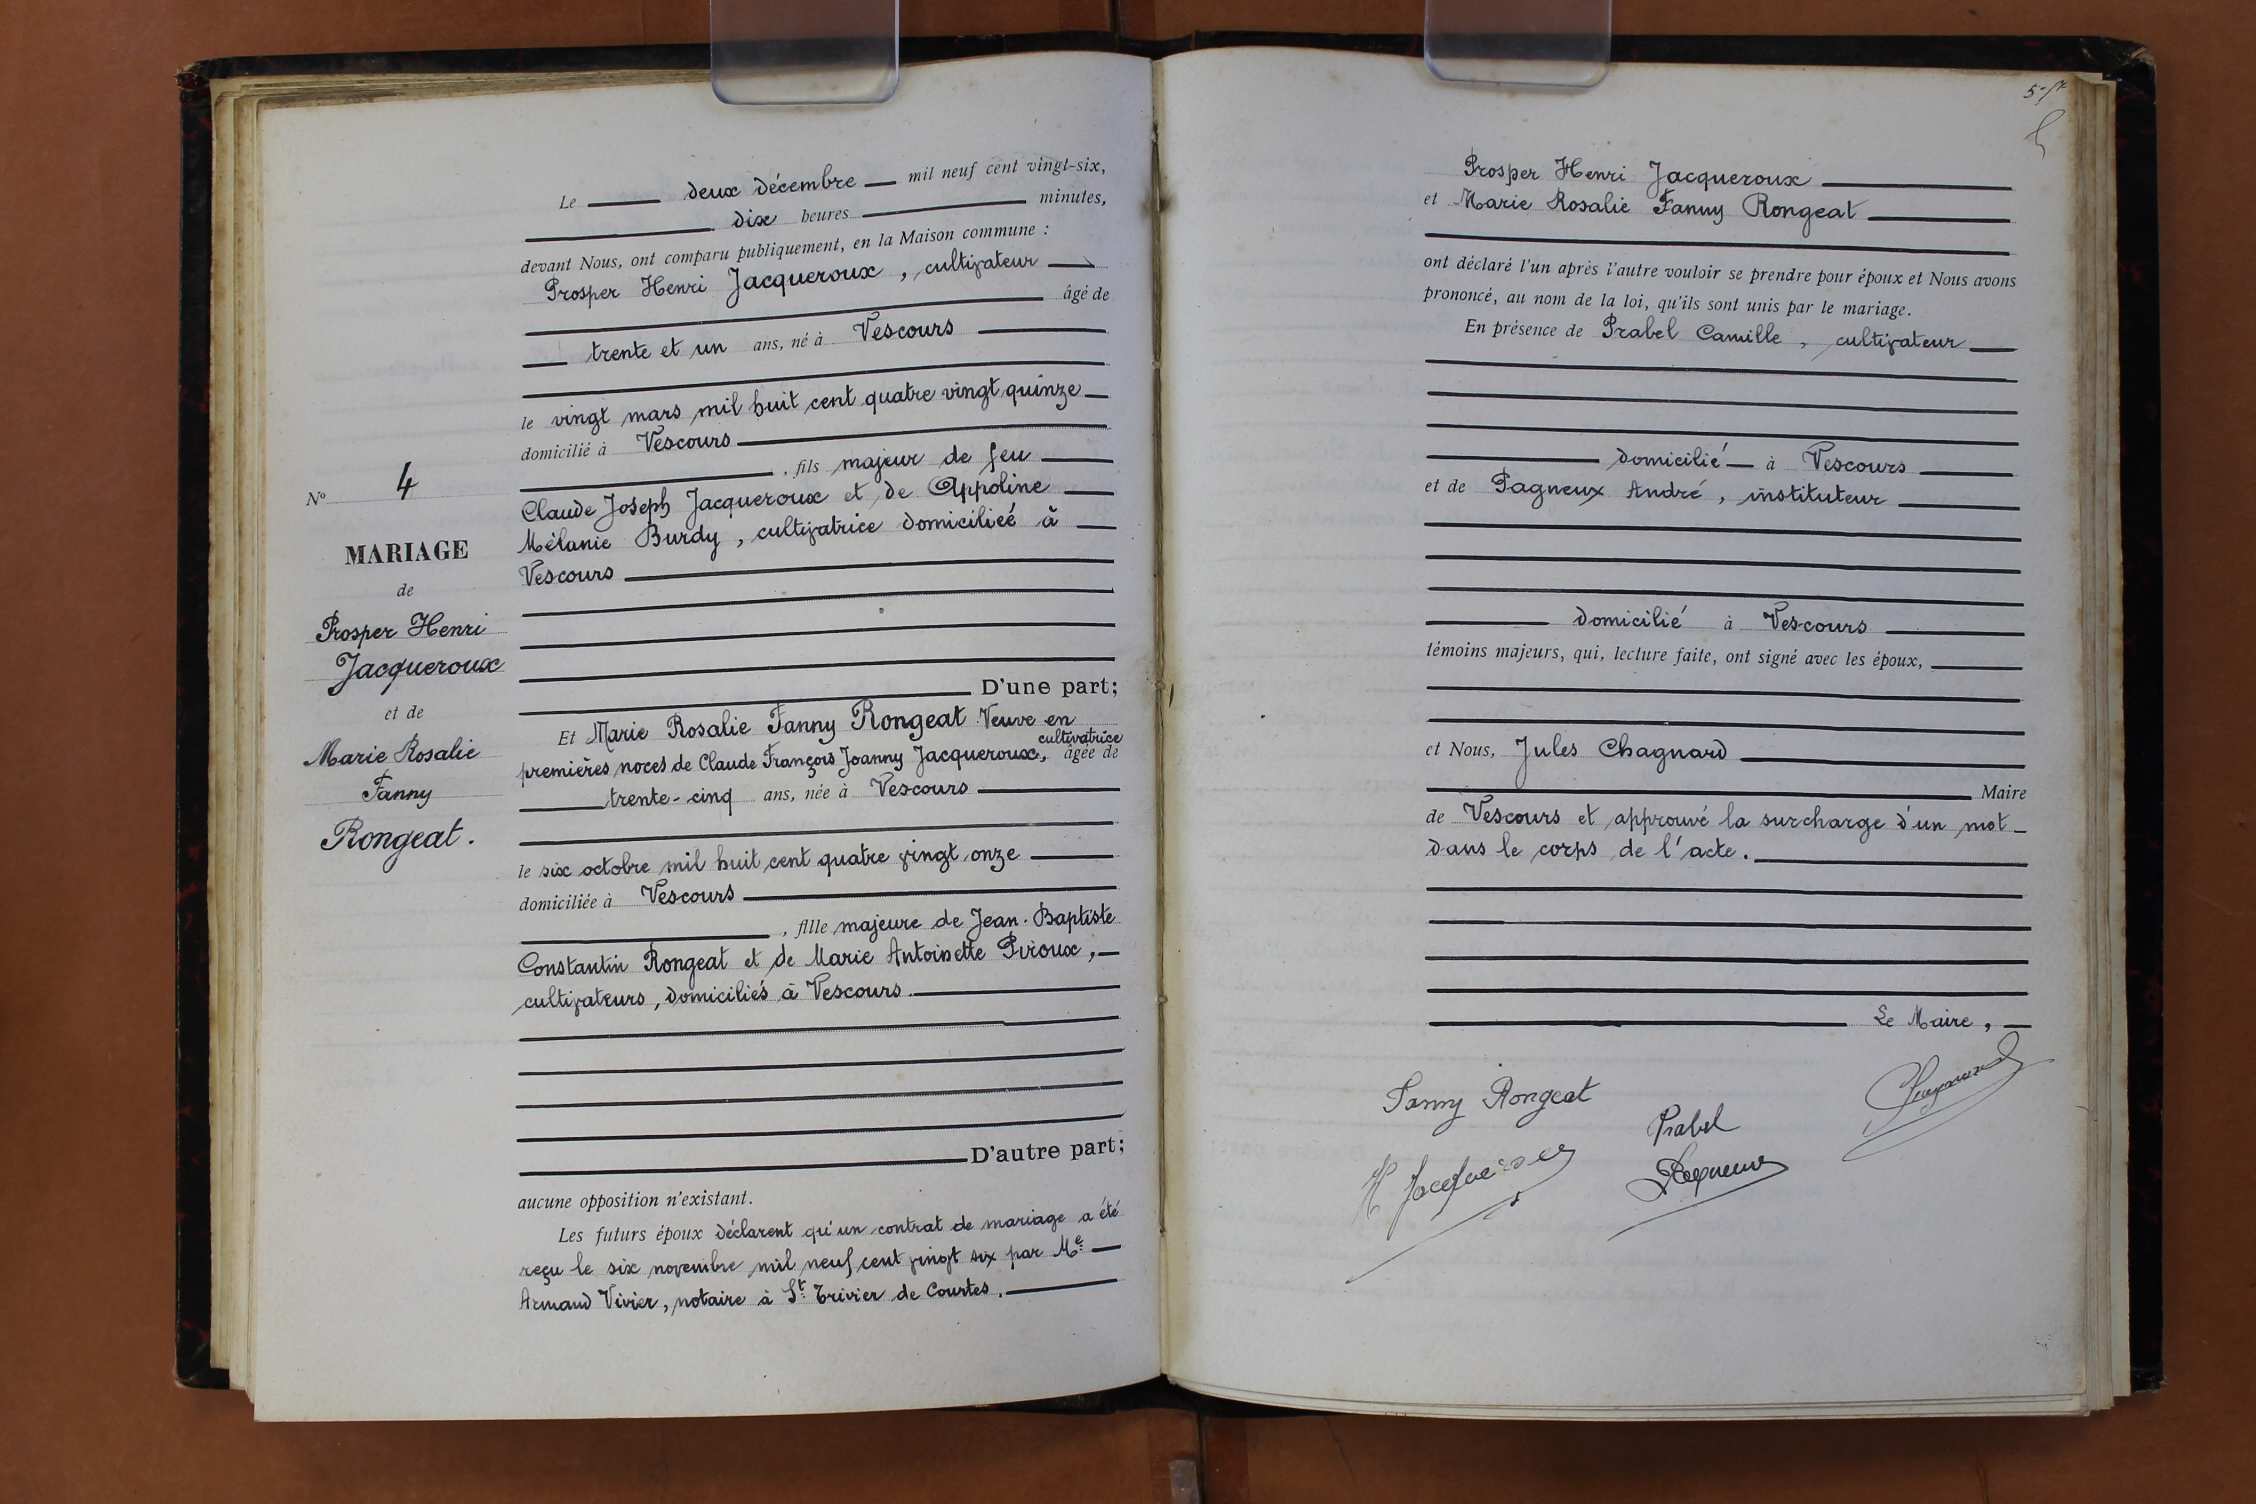 N° 4
MARIAGE
de
Prosper Henri
Jacqueroux
et de
Marie Rosalie
Fanny
Rongeat.
Le deux décembre mil neuf cent vingt-six,
dix heures minutes,
devant Nous, ont comparu publiquement, en la Maison commune :
Prosper Henri Jacqueroux, cultivateur
âgé de
trente et un ans, né à Vescours
le vingt mars mil huit cent quatre vingt quinze
domicilié à Vescours
, fils majeur de feu
Claude Joseph Jacqueroux et de Appoline
Mélanie Burdy, cultivatrice domiciliée à
Vescours
D'une part;
Et Marie Rosalie Fanny Rongeat Veuve en
cultivatrice
premières noces de Claude François Joanny Jacqueroux, âgée de
trente-cinq ans, née à Vescours
le six octobre mil huit cent quatre vingt onze
domiciliée à Vescours
, fille majeure de Jean-Baptiste
Constantin Rongeat et de Marie Antoinette Piroux,
cultivateurs, domiciliés à Vescours.
D'autre part;
aucune opposition n'existant.
Les futurs époux déclarent qu'un contrat de mariage a été
reçu le six novembre mil neuf cent vingt six par Me
Armand Vivier, notaire à St Trivier de Courtes.
Prosper Henri Jacqueroux
et Marie Rosalie Fanny Rongeat
ont déclaré l'un après l'autre vouloir se prendre pour époux et Nous avons
prononcé, au nom de la loi, qu'ils sont unis par le mariage.
En présence de Prabel Camille, cultivateur
domicilié à Vescours
et de Pagneux André, instituteur
domicilié à Vescours
témoins majeurs, qui, lecture faite, ont signé avec les époux,
et Nous, Jules Chagnard
Maire
de Vescours et approuvé la surcharge d'un mot
dans le corps de l'acte.
Le Maire,
Fanny Rongeat
Prabel
H Jacqueroux
Pagneux
Chagnard